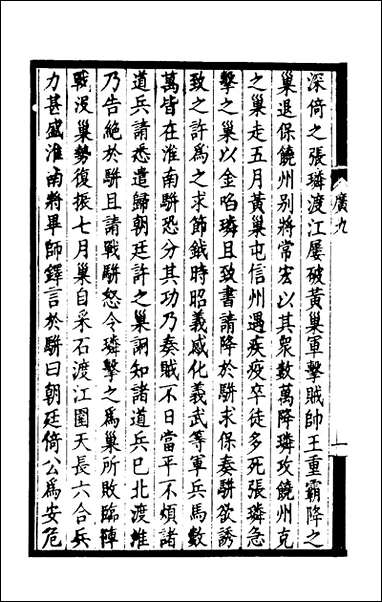 廣九
一
深倚之張璘渡江屢破黃巢軍擊賊帥王重霸降之
巢退保饒州别將常宏以其衆數萬降璘攻饒州克
之巢走五月黃巢屯信州遇疾疫卒徒多死張璘急
擊之巢以金啗璘且致書請降於駢求保奏駢欲誘
致之許爲之求節鉞時昭義感化義武等軍兵馬數
萬皆在淮南駢恐分其功乃奏賊不日當平不煩諸
道兵請悉遣歸朝廷許之巢詗知諸道兵已北渡淮
乃告絕於駢且請戰駢怒令璘擊之爲巢所敗臨陣
戰没巢勢復振七月巢自采石渡江圍天長六合兵
力甚盛淮南將畢師鐸言於駢曰朝廷倚公爲安危